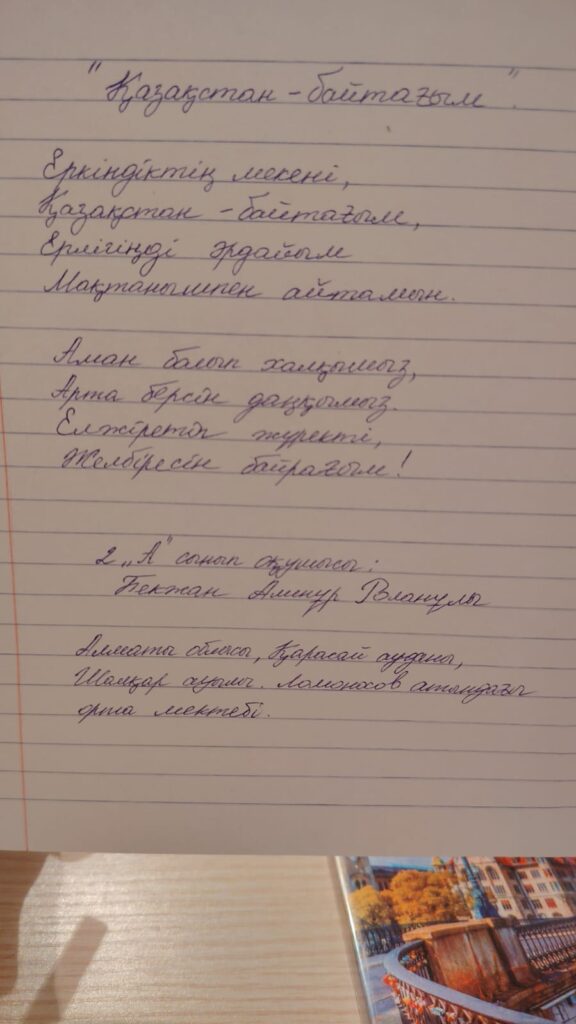 "Қазақстан - байтағым".
Еркіндіктің мекені,
Қазақстан - байтағым,
Ерлігіңді әрдайым
Мақтанышпен айтамын.
Аман болып халқымыз,
Арта берсін даңқымыз.
Елжіретіп жүректі,
Желбіресін байрағым!
2 "А" сынып оқушысы:
Бекжан Алинұр
Алматы облысы, Қарасай ауданы,
Шалқар ауылы. Ломоносов атындағы
орта мектебі.